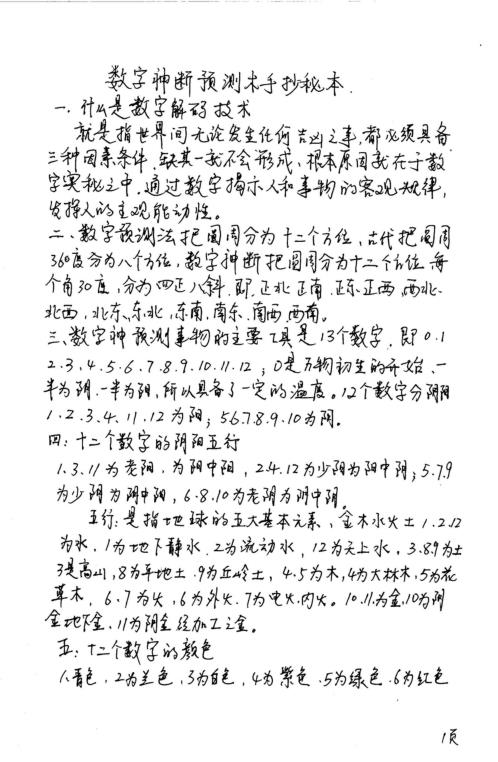 数字神断预测术手抄秘本
一、什么是数字解码技术
就是指世界间无论发生任何吉凶之事,都必须具备
三种因素条件,缺其一就不会形成、根本原因就在于数
字奥秘之中,通过数字揭示人和事物的客观规律,
发挥人的主观能动性。
二、数字预测法把圆周分为十二个方位,古代把圆周
360度分为八个方位,数字神断把圆周分为十二个方位,每
个角30度,分为四正八斜.即.正北正南.正东正西,西北.
北西,北东、东北,东南.南东、南西.西南。
三、数字神预测事物的主要工具是13个数字.即0.1
2.3.4.5.6.7.8.9.10.11.12;0是万物初生的开始、一
半为阴.一半为阳,所以具备了一定的温度。12个数字分阴阳
1.2.3.4、11.12为阳;5.6.7.8.9.10为阴。
四:十二个数字的阴阳五行
1.3.11为老阳.为阳中阳,2.4.12为少阳为阳中阴;5.7.9
为少阴为阴中阳,6.8.10为老阴为阴中阴.
五行:是指地球的五大基本元素,金木水火土1.2.12
为水.1为地下静水.2为流动水,12为天上水.3.8.9为土
3是高山,8为平地土.9为丘岭土,4.5为木,4为大林木.5为花
草木,6.7为火,6为外火.7为电火.内火。10.11.为金.10为阴
金地下金.11为阴金经加工之金。
五:十二个数字的颜色
1.青色,2为兰色,3为白色,4为紫色.5为绿色.6为红色
1页